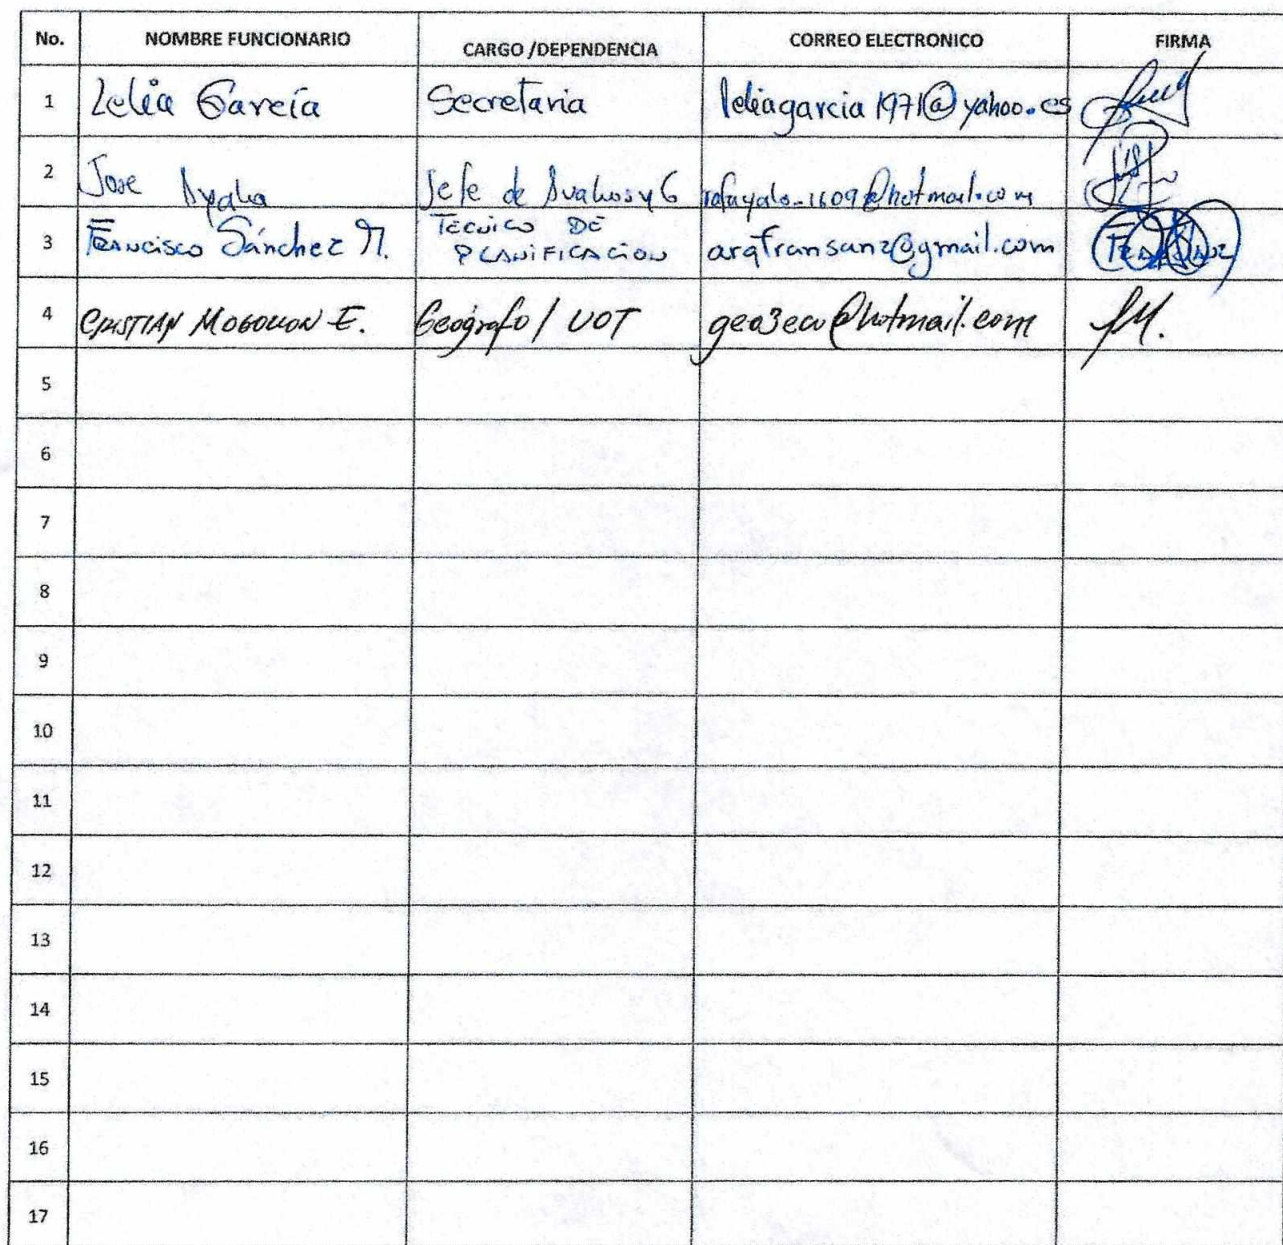 No. NOMBRE FUNCIONARIO CARGO /DEPENDENCIA CORREO ELECTRONICO FIRMA
1 Lelia García Secretaria leliagarcia1971@yahoo.es
2 Jose Ayala Jefe de Avaluos y C
TECNICO DE
3 FRANCISCO Sánchez M. PLANIFICACION arqfransanz@gmail.com FRANSANZ
4 CRISTIAN MOGOLLON E. Geógrafo / UOT geo3ecu@hotmail.com
5
6
7
8
9
10
11
12
13
14
15
16
17